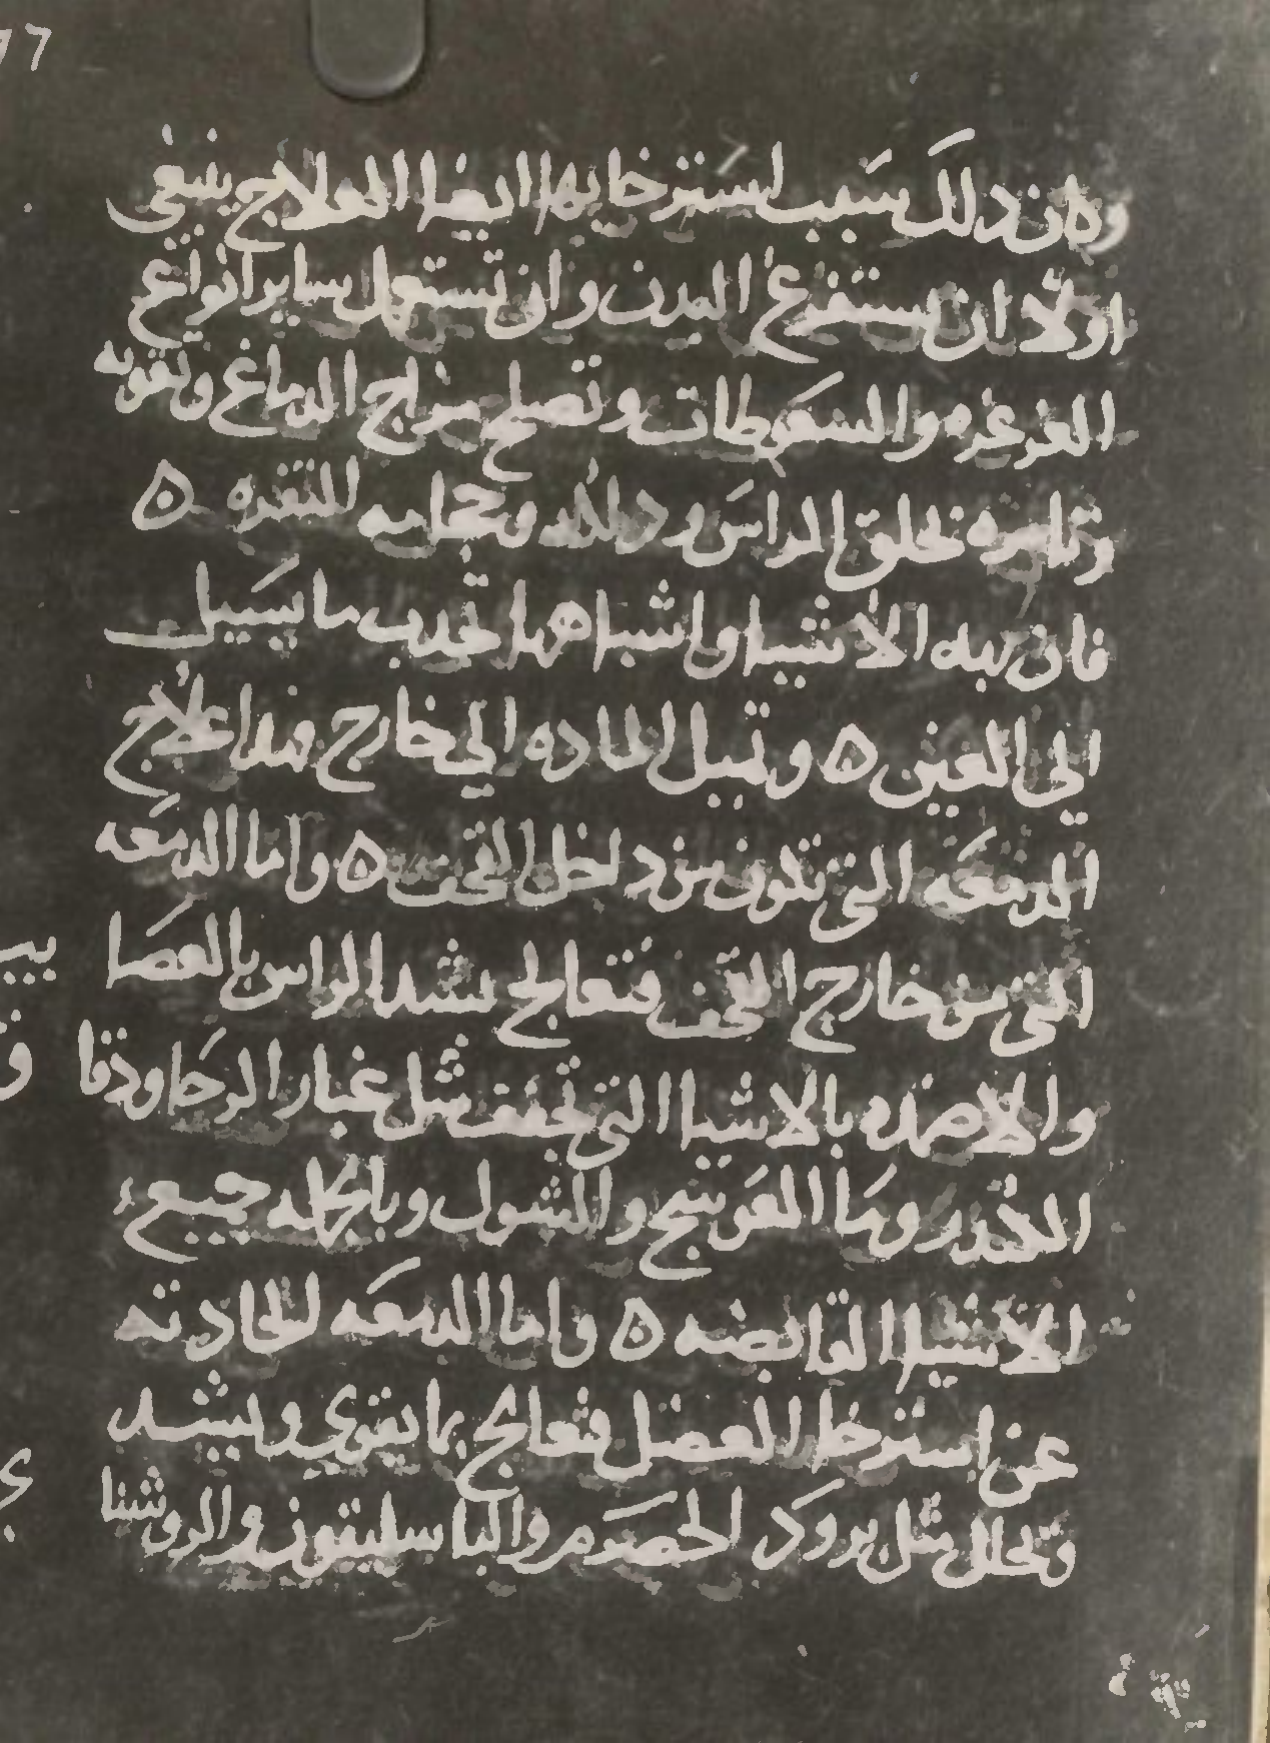 وكان ذلك سبب لسترخايها ايضا العلاج ينبغى
اولا ان يستفرغ البدن وان تستعمل ساير انواع
الغرغره والسعوطات وتصلح مزاج الدماغ وتقويه
وتامره بحلق الراس ودلكه النقره ٥
فان هده الاشيا واشباهها تجدب ما يسيل
الى العين ٥ وتميل الماده الي خارج فهدا علاج
الدمعه التى تكون من داخل القحف ٥ واما الدمعه
التى من خارج القحف فتعالج بشد الراس بالعصا يب
والاضمده بالاشيا التى تجفف مثل غبار الرحا ودقا ق
الكندر وما العوسج والشول وبالجمله جميع
الاشيا القابضه ٥ واما الدمعه الحادثه
عن استرخا العضل فتعالج بما يقوي ويشد
وتحلل مثل برود الحصرم والباسليقون والروشنا ي